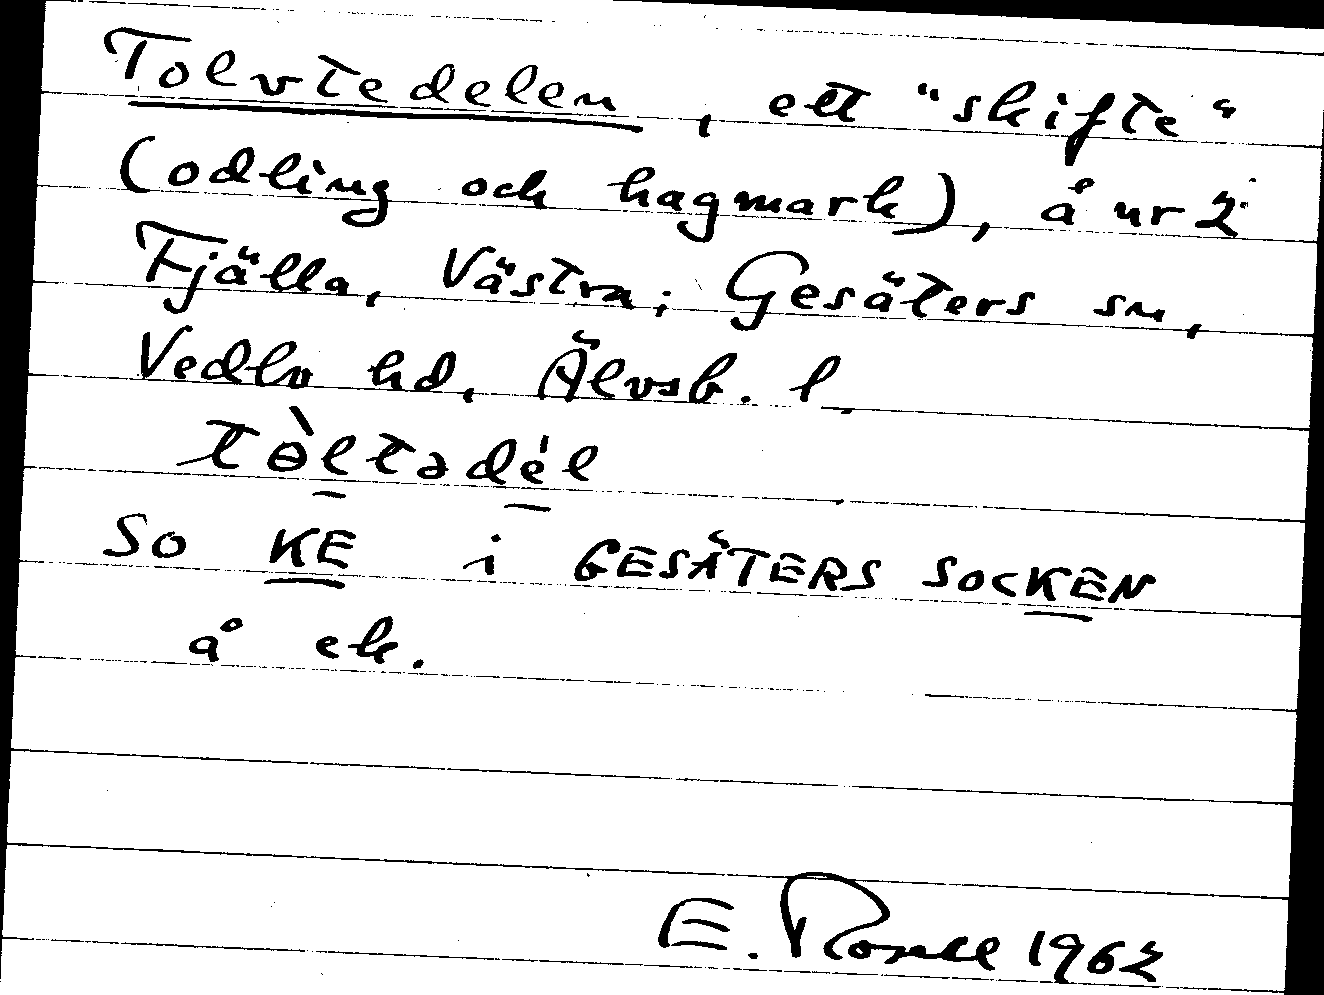 Tolvtedelen, ett "skifte"
(odling och hagmark), å nr 2
Fjälla, Västra; Gesäters sn,
Vedbo hd, Älvsb. l.
tòltədél
So KE i GESÄTERS SOCKEN
å ek.
E. Rosell 1962